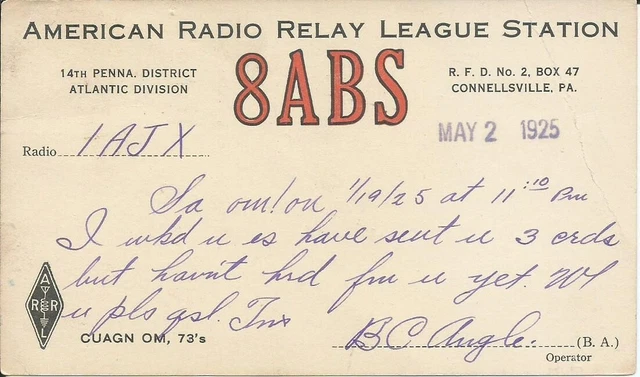 AMERICAN RADIO RELAY LEAGUE STATION
14TH PENNA. DISTRICT
ATLANTIC DIVISION
8ABS
R. F. D. No. 2, BOX 47
CONNELLSVILLE, PA.
MAY 2 1925
Radio 1AJX
Sa om! on 1/19/25 at 11:10 Pm
I wkd u es have sent u 3 crds
but havn't hrd fm u yet. Wl
u pls qsl. Tnx
A R R L
CUAGN OM, 73's
B C Angle. (B. A.)
Operator